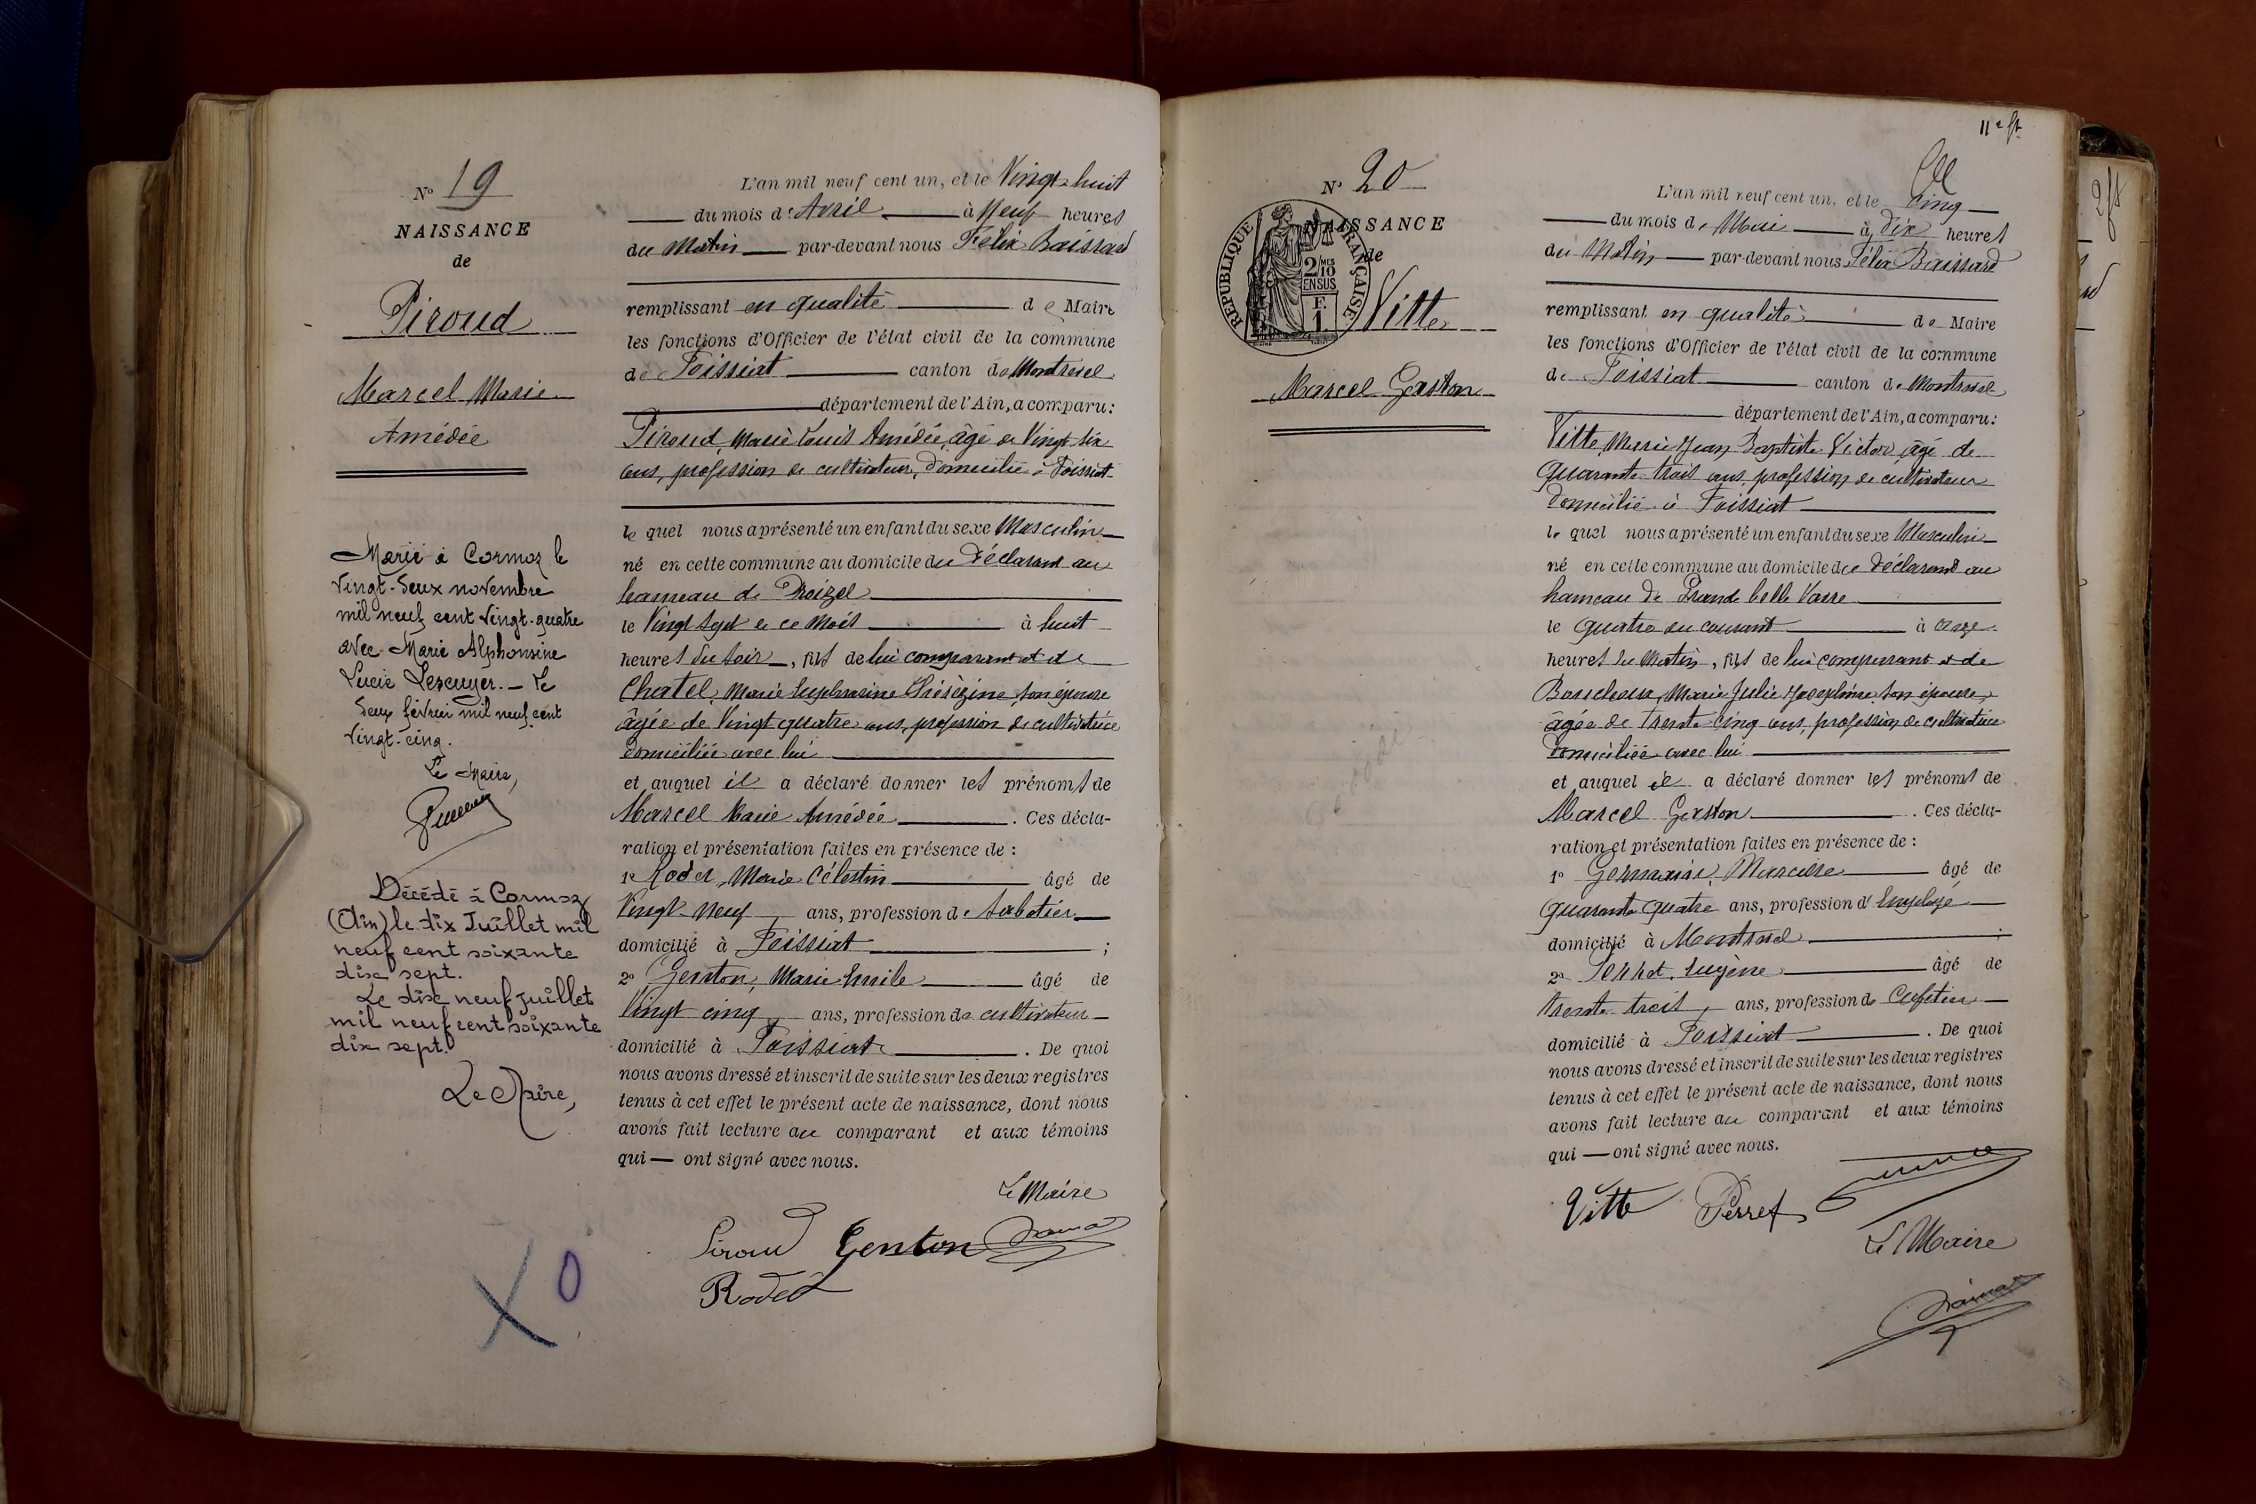 N° 19
NAISSANCE
de
Piroud
Marcel Marie
Amédée
Marié à Cormoz le
vingt-deux novembre
mil neuf cent vingt-quatre
avec Marie Alphonsine
Lucie Lescuyer. — Le
deux février mil neuf cent
vingt-cinq.
Le Maire,
Décédé à Cormoz
(Ain) le dix Juillet mil
neuf cent soixante
dix sept.
Le dix neuf Juillet
mil neuf cent soixante
dix sept.
Le Maire,
L'an mil neuf cent un, et le Vingt-huit
du mois d'Avril à Neuf heures
du Matin par-devant nous Félix Baissard
remplissant en qualité de Maire
les fonctions d'Officier de l'état civil de la commune
de Foissiat canton de Montrevel
département de l'Ain, a comparu:
Piroud, Marie Louis Amédée, âgé de Vingt-six
ans, profession de cultivateur, domicilié à Foissiat
le quel nous a présenté un enfant du sexe Masculin
né en cette commune au domicile du Déclarant au
hameau de
le Vingt Sept de ce Mois à huit
heures du soir, fils de lui comparant et de
Chatel, Marie Euphrasine, son épouse
âgée de Vingt quatre ans, profession de cultivatrice
domiciliée avec lui
et auquel il a déclaré donner les prénoms de
Marcel Marie Amédée. Ces décla-
ration et présentation faites en présence de :
1° Rodet, Marie Célestin âgé de
Vingt-Neuf ans, profession de Sabotier
domicilié à Foissiat ;
2° Genton, Marie Emile âgé de
Vingt cinq ans, profession de cultivateur
domicilié à Foissiat. De quoi
nous avons dressé et inscrit de suite sur les deux registres
tenus à cet effet le présent acte de naissance, dont nous
avons fait lecture au comparant et aux témoins
qui — ont signé avec nous.
Le Maire
Piroud Genton
Rodet
X 0
11e ft
N° 20
NAISSANCE
de
RÉPUBLIQUE FRANÇAISE
2/10 MES
EN SUS
F.
1
Vitte
Marcel Gaston
L'an mil neuf cent un, et le Cinq
du mois de Mai à dix heures
du Matin par-devant nous Félix Baissard
remplissant en qualité de Maire
les fonctions d'Officier de l'état civil de la commune
de Foissiat canton de Montrevel
département de l'Ain, a comparu:
Vitte, Marie Jean Baptiste Victor, âgé de
quarante-trois ans, profession de cultivateur
domicilié à Foissiat
le quel nous a présenté un enfant du sexe Masculin
né en cette commune au domicile du Déclarant au
hameau de
le quatre du courant à onze
heures du Matin, fils de lui comparant et de
Marie Julie Joséphine, son épouse,
âgée de trente cinq ans, profession de cultivatrice
domiciliée avec lui
et auquel il a déclaré donner les prénoms de
Marcel Gaston. Ces décla-
ration et présentation faites en présence de :
1° Germain, âgé de
quarante quatre ans, profession d'Employé
domicilié à Montrevel ;
2° Perret, Eugène âgé de
trente trois, ans, profession de Cafetier
domicilié à Foissiat. De quoi
nous avons dressé et inscrit de suite sur les deux registres
tenus à cet effet le présent acte de naissance, dont nous
avons fait lecture au comparant et aux témoins
qui — ont signé avec nous.
Vitte Perret
Le Maire
2 ft